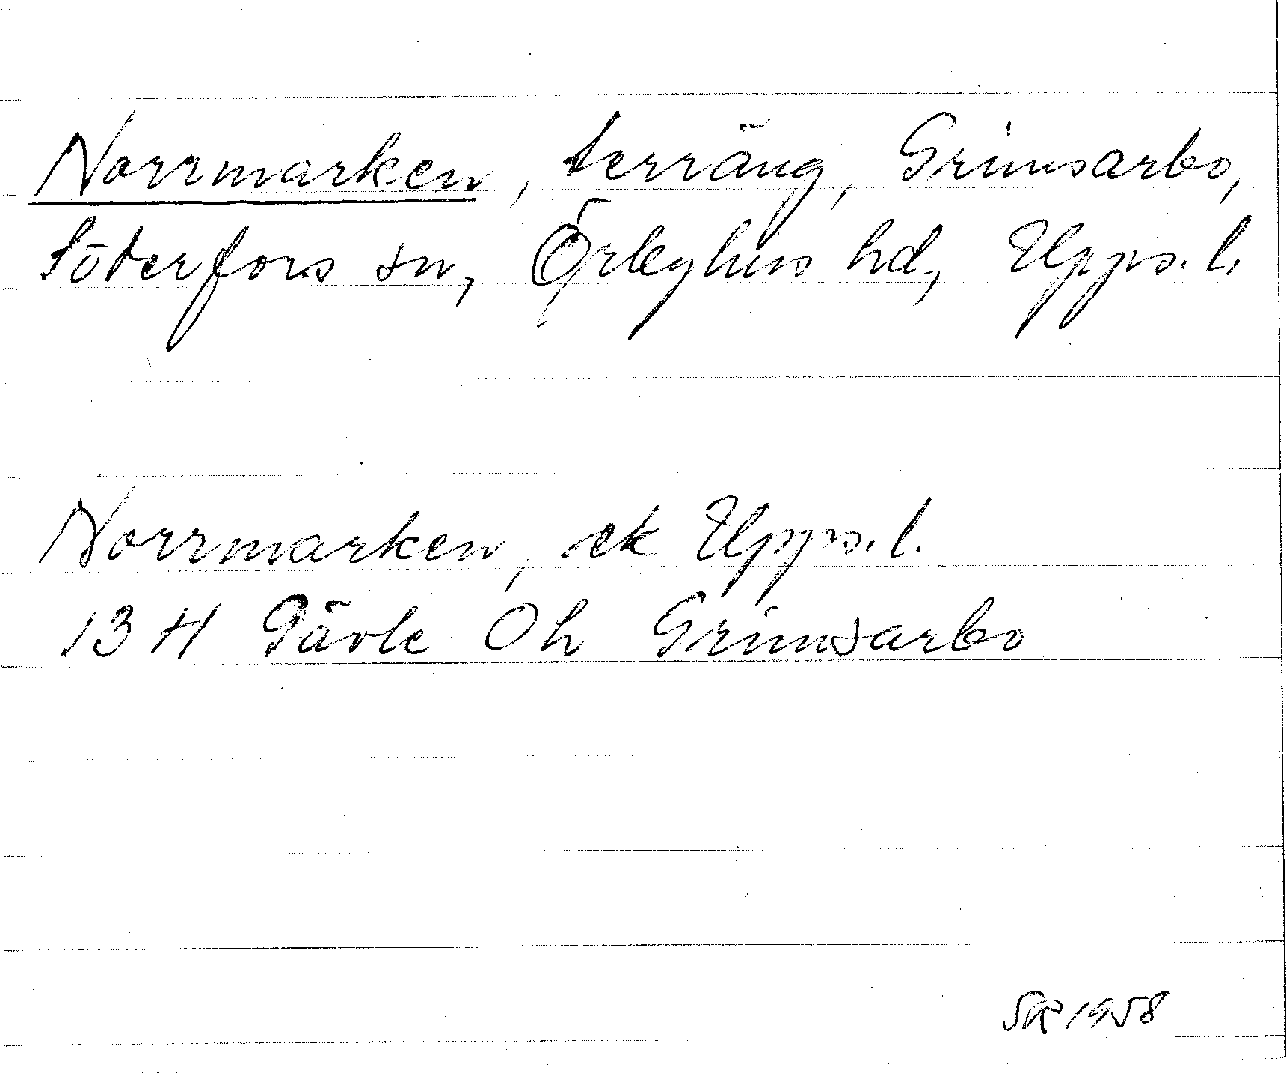 Norrmarken, terräng, Grimsarbo,
Söderfors sn, Örbyhus hd, Upps. l.
Norrmarken, ek Upps. l.
13 H Gävle Oh Grimsarbo
SR 1958